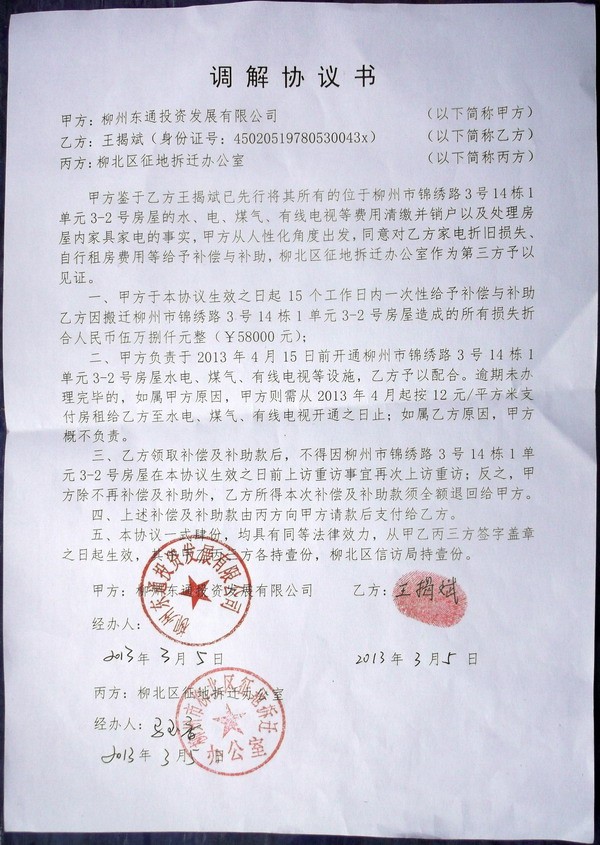 调解协议书
甲方：柳州东通投资发展有限公司 （以下简称甲方）
乙方：王揭斌（身份证号：45020519780530043x） （以下简称乙方）
丙方：柳北区征地拆迁办公室 （以下简称丙方）
甲方鉴于乙方王揭斌已先行将其所有的位于柳州市锦绣路3号14栋1
单元3-2号房屋的水、电、煤气、有线电视等费用清缴并销户以及处理房
屋内家具家电的事实，甲方从人性化角度出发，同意对乙方家电折旧损失、
自行租房费用等给予补偿与补助，柳北区征地拆迁办公室作为第三方予以
见证。
一、甲方于本协议生效之日起15个工作日内一次性给予补偿与补助
乙方因搬迁柳州市锦绣路3号14栋1单元3-2号房屋造成的所有损失折
合人民币伍万捌仟元整（￥58000元）；
二、甲方负责于2013年4月15日前开通柳州市锦绣路3号14栋1
单元3-2号房屋水电、煤气、有线电视等设施，乙方予以配合。逾期未办
理完毕的，如属甲方原因，甲方则需从2013年4月起按12元/平方米支
付房租给乙方至水电、煤气、有线电视开通之日止；如属乙方原因，甲方
概不负责。
三、乙方领取补偿及补助款后，不得因柳州市锦绣路3号14栋1单
元3-2号房屋在本协议生效之日前上访重访事宜再次上访重访；反之，甲
方除不再补偿及补助外，乙方所得本次补偿及补助款须全额退回给甲方。
四、上述补偿及补助款由丙方向甲方请款后支付给乙方。
五、本协议一式肆份，均具有同等法律效力，从甲乙丙三方签字盖章
之日起生效，其中甲乙丙三方各持壹份，柳北区信访局持壹份。
甲方：柳州东通投资发展有限公司 乙方：王揭斌
柳州东通投资发展有限公司
经办人：
2013年3月5日 2013年3月5日
丙方：柳北区征地拆迁办公室
柳州市柳北区征地拆迁
办公室
经办人：
2013年3月5日